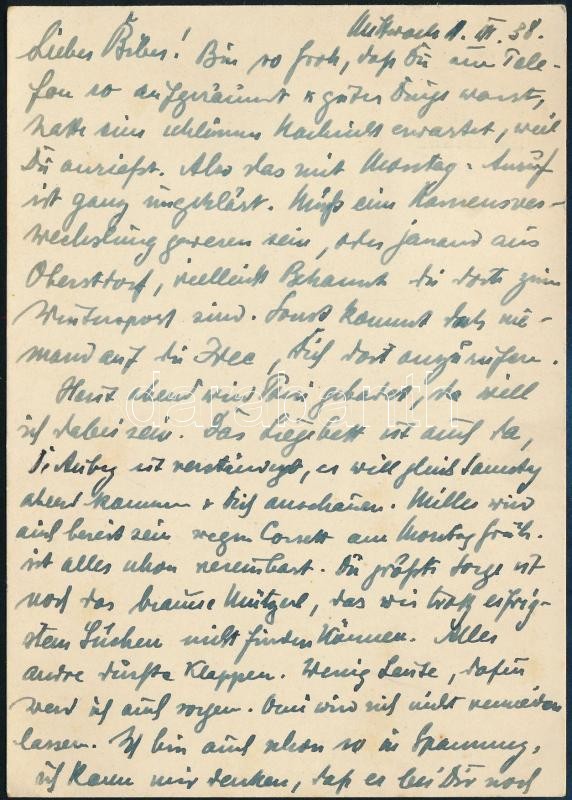 Mittwoch II. III. 38.
Lieber Biber! Bin so froh, daß Du am Tele-
fon so aufgeräumt & guter Dinge warst,
hatte eine schlimme Nachricht erwartet, weil
Du anriefst. Also das mit Montag-Anruf
ist ganz ungeklärt. Muß eine Namensver-
wechslung gewesen sein, oder jemand aus
Oberstdorf, vielleicht Bekannte die dort zum
Wintersport sind. Sonst kommt doch nie-
mand auf die Idee, Dich dort anzurufen.
Heut abend wird gebadet, da will
ich dabei sein. Das Liegebett ist auch da,
Dr. ist verständigt, er will gleich Samstag
abend kommen & Dich anschauen. wird
auch bereit sein wegen Corsett am Montag früh.
ist alles schon vereinbart. Die größte Sorge ist
noch das braune Mützerl, das wir trotz eifrig-
stem Suchen nicht finden können. Alles
andre dürfte klappen. Wenig Leute, dafür
werd ich auch sorgen. Omi wird sich nicht vermeiden
lassen. Ich bin auch schon so in Spannung,
ich kann mir denken, daß es bei Dir noch
darabanth